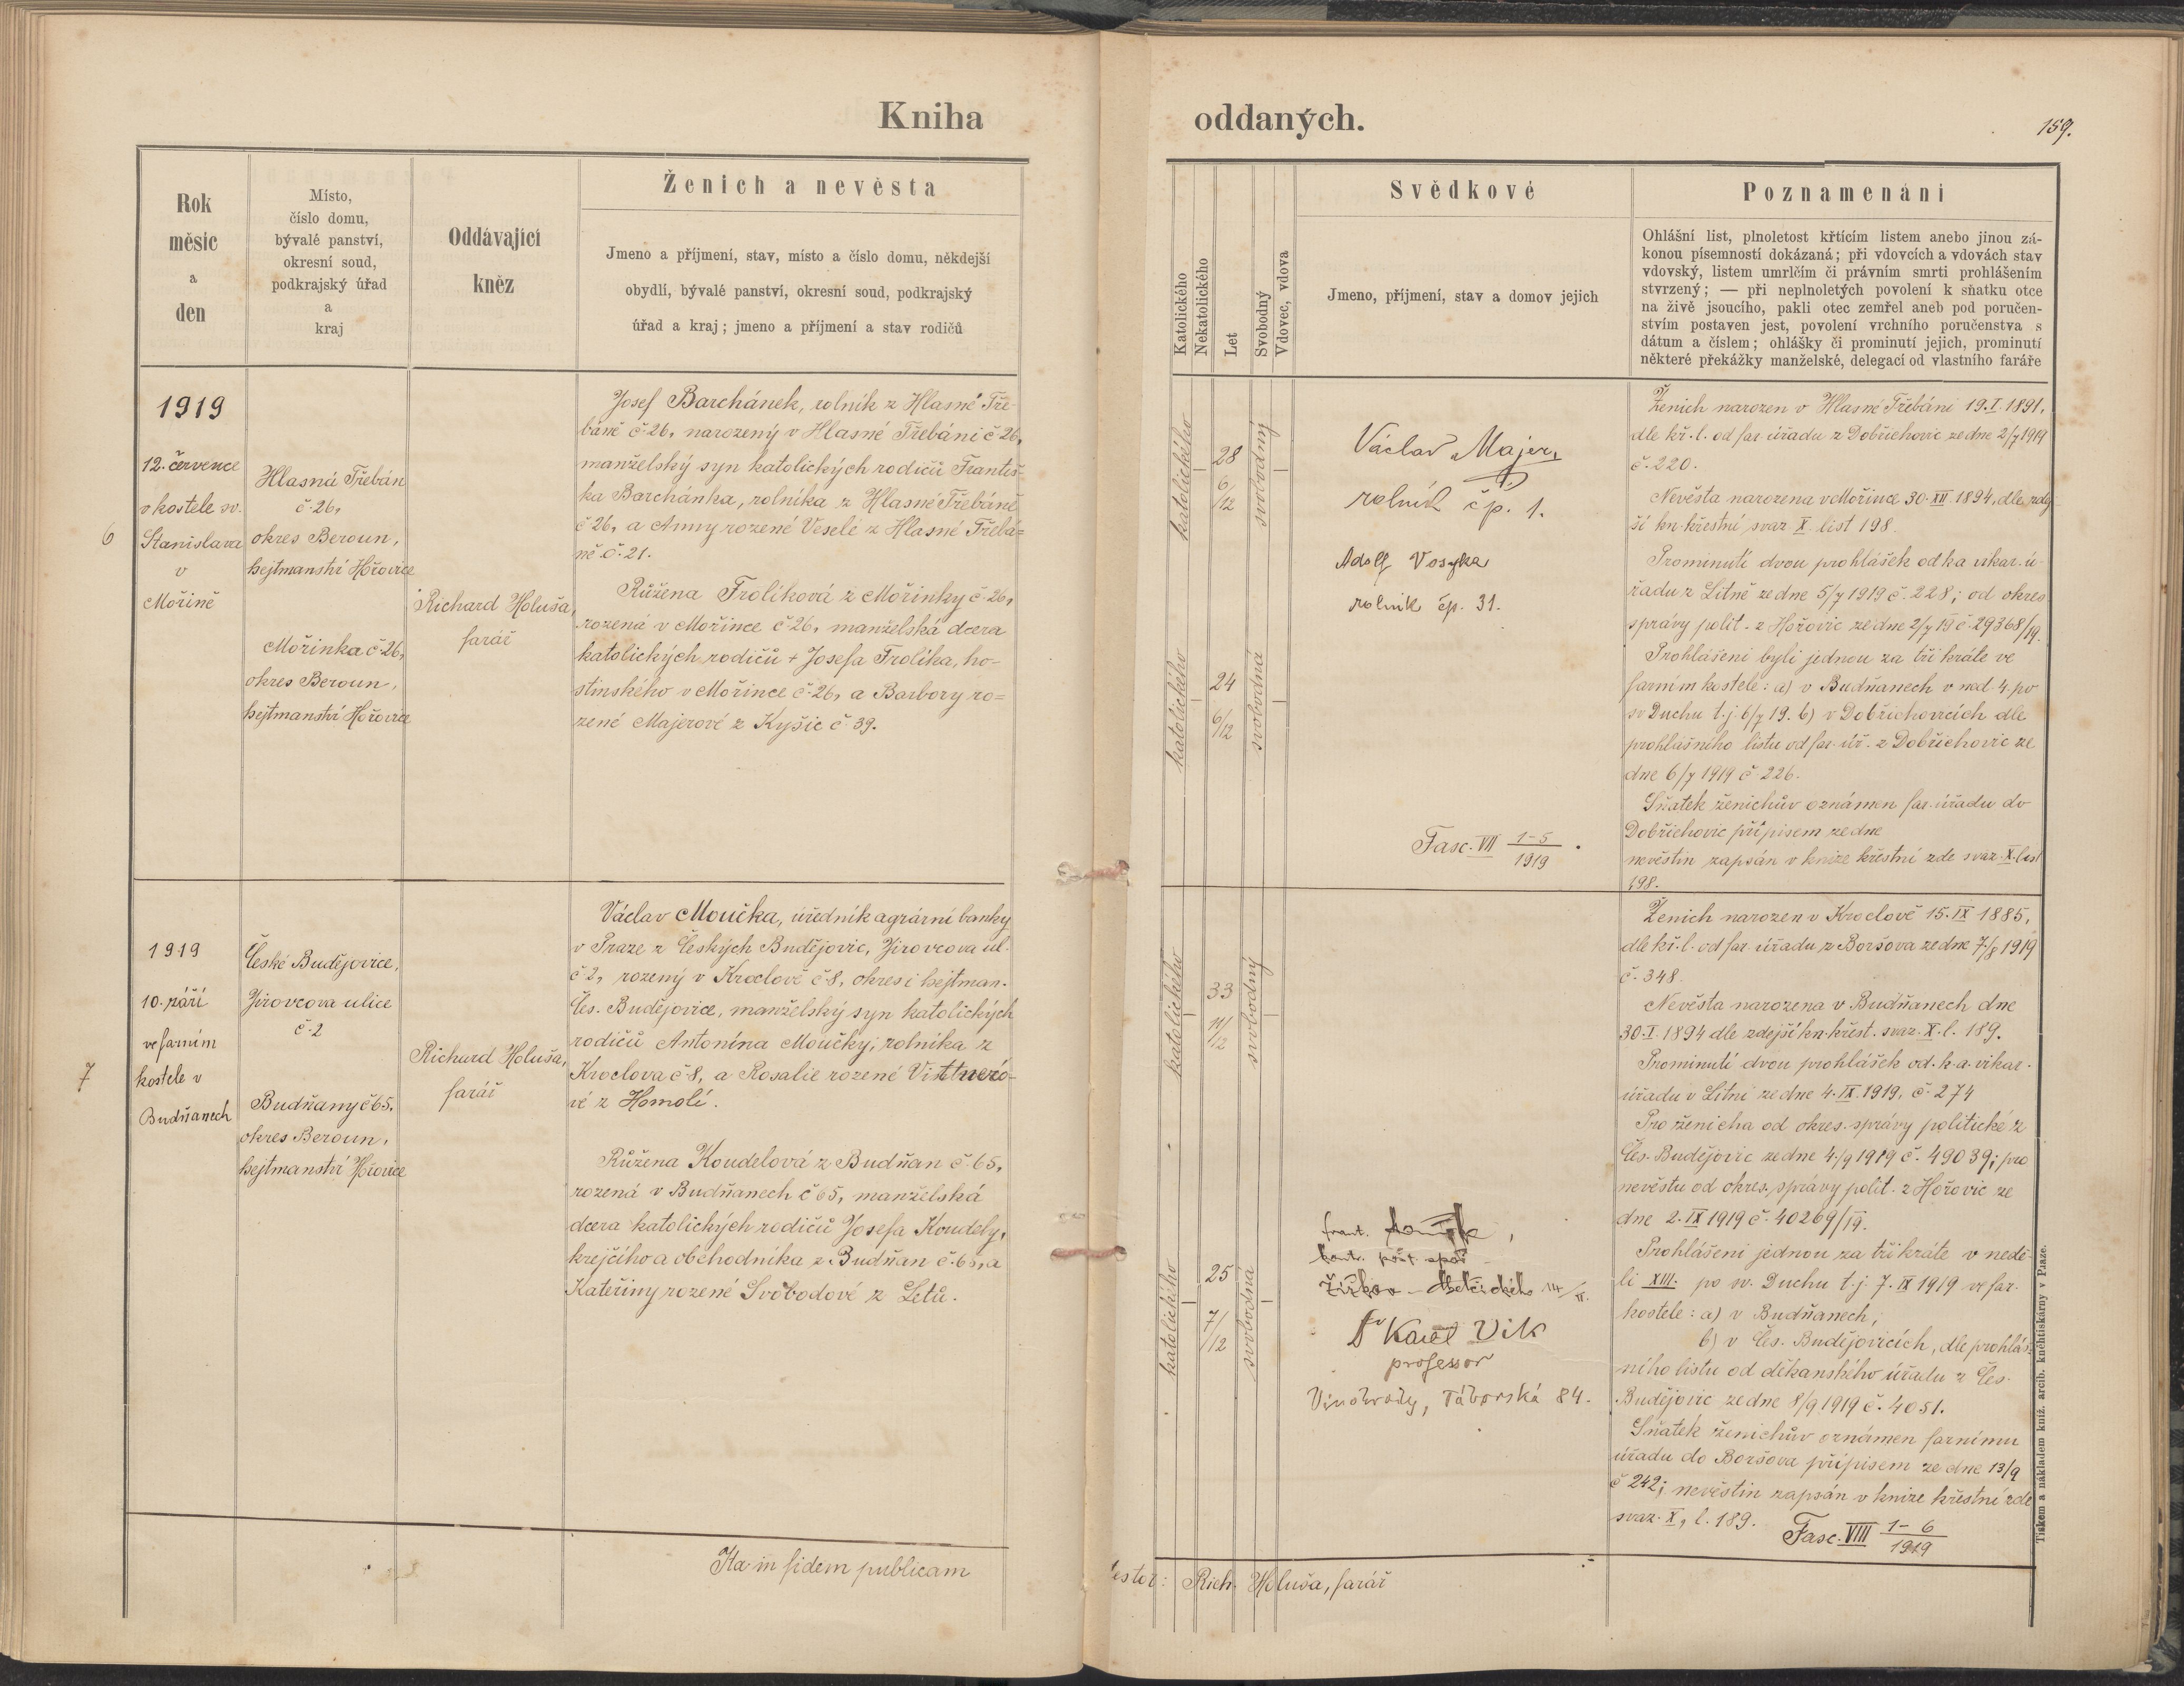 Kniha
Rok
měsíc
a
den
Místo,
číslo domu,
bývalé panství,
okresní soud,
podkrajský úřad
a
kraj
Oddávající
kněz
Ženich a nevěsta
Jmeno a příjmení, stav, místo a číslo domu, někdejší
obydlí, bývalé panství, okresní soud, podkrajský
úřad a kraj; jmeno a příjmení a stav rodičů
6
1919
12. července
v kostele sv.
Stanislava
v
Mořině
Hlasná Třebáň
č. 26,
okres Beroun,
hejtmanství Hořovice
Mořinka č. 26,
okres Beroun,
hejtmanství Hořovice
Richard Holuša,
farář
Josef Barchánek, rolník z Hlasné Tře-
báně č. 26, narozený v Hlasné Třebáni č. 26,
manželský syn katolických rodičů Františ-
ka Barchánka, rolníka z Hlasné Třebáně
č. 26, a Anny rozené Veselé z Hlasné Třebá=
ně č. 21.
Růžena Frolíková z Mořinky č. 26,
rozená v Mořince č. 26, manželská dcera
katolických rodičů + Josefa Frolíka, ho-
stinského v Mořince č. 26, a Barbory ro=
zené Majerové z Kyšic č. 39.
7
1919
10. září
ve farním
kostele v
Budňanech
České Budějovice,
Jirovcova ulice
č. 2
Budňany č. 65,
okres Beroun,
hejtmanství Hořovice
Richard Holuša,
farář
Václav Moučka, úředník agrární banky
v Praze z Českých Budějovic, Jirovcova ul.
č. 2, rozený v Kroclově č. 8, okres i hejtman.
Čes. Budějovice, manželský syn katolických
rodičů Antonína Moučky, rolníka z
Kroclova č. 8, a Rosalie rozené Vinttnero-
vé z Homolí.
Růžena Koudelová z Budňan č. 65,
rozená v Budňanech č. 65, manželská
dcera katolických rodičů Josefa Koudely,
krejčího a obchodníka z Budňan č. 65, a
Kateřiny rozené Svobodové z Letů.
Ita in fidem publicam
oddaných.
159.
Katolického
Nekatolického
Let
Svobodný
Vdovec, vdova
Svědkové
Jmeno, příjmení, stav a domov jejich
Poznamenání
Ohlášní list, plnoletost křtícím listem anebo jinou zá-
konou písemností dokázaná; při vdovcích a vdovách stav
vdovský, listem umrlčím či právním smrti prohlášením
stvrzený; — při neplnoletých povolení k sňatku otce
na živě jsoucího, pakli otec zemřel aneb pod poručen-
stvím postaven jest, povolení vrchního poručenstva s
dátum a číslem; ohlášky či prominutí jejich, prominutí
některé překážky manželské, delegací od vlastního faráře
katolického
28
6/12
svobodný
katolického
24
6/12
svobodná
Václav Majer,
rolník čp. 1.
Adolf Vosyka
rolník čp. 31.
Fasc. VII 1-5/1919.
Ženich narozen v Hlasné Třebáni 19. I. 1891,
dle kř. l. od far. úřadu z Dobřichovic ze dne 2/7 1919
č. 220.
Nevěsta narozena v Mořince 30. XII. 1894, dle zdej-
ší kn. křestní svaz. X. list 198.
Prominutí dvou prohlášek od k. a vikar. ú-
řadu z Litně ze dne 5/7 1919 č. 228; od okres.
správy polit. z Hořovic ze dne 2/7 19 č. 29368/19.
Prohlášeni byli jednou za tři kráte ve
farním kostele: a) v Budňanech v ned. 4. po
sv. Duchu t. j. 6/7 19. b) v Dobřichovicích dle
prohlášního listu od far. úř. z Dobřichovic ze
dne 6/7 1919 č. 226.
Sňatek ženichův oznámen far. úřadu do
Dobřichovic přípisem ze dne
nevěstin zapsán v knize křestní zde svaz. X. list
198.
katolického
33
11/12
svobodný
katolického
25
7/12
svobodná
frant.
Žižkov
Dr Karel Vik
professor
Vinohrady, Táborská 84.
Ženich narozen v Kroclově 15. IX 1885,
dle kř. l. od far. úřadu z Boršova ze dne 7./8 1919
č. 348.
Nevěsta narozena v Budňanech dne
30. I. 1894 dle zdejší kn. křest. svaz. X. l. 189.
Prominutí dvou prohlášek od. k. a. vikar.
úřadu v Litni ze dne 4. IX. 1919, č. 274
Pro ženicha od okres. správy politické z
Čes. Budějovic ze dne 4./9 1919 č. 49039; pro
nevěstu od okres. správy polit. z Hořovic ze
dne 2. IX 1919 č. 40269/19.
Prohlášeni jednou za třikráte v nedě-
li XIII. po sv. Duchu t. j. 7. IX 1919 ve far.
kostele: a) v Budňanech,
b) v Čes. Budějovicích, dle prohláš-
ního listu od děkanského úřadu z Čes.
Budějovic ze dne 8/9 1919 č. 4051.
Sňatek ženichův oznámen farnímu
úřadu do Boršova přípisem ze dne 13/9
č 242; nevěstin zapsán v knize křestní zde
svaz. X, l. 189.
Fasc. VIII 1-6/1919
estor: Rich. Holuša, farář
Tiskem a nákladem kníž. arcib. kněhtiskárny v Praze.